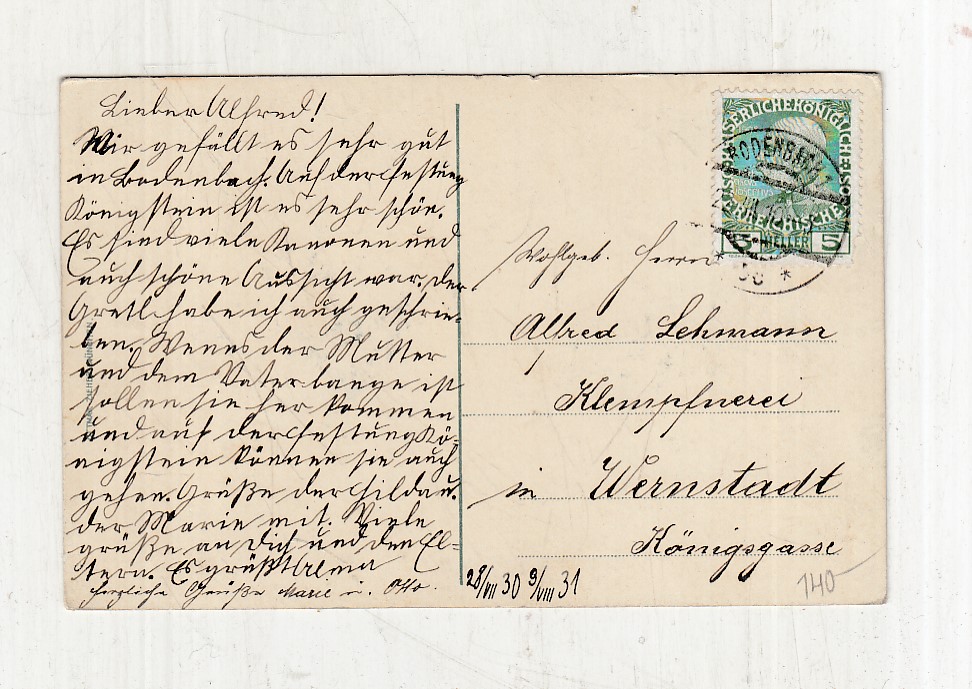 Lieber Alfred!
Wir gefällt es sehr gut
in Bodenbach. Auf der Festung
Königstein ist es sehr schön.
Es sind viele Kanonen und
auch schöne Aussicht war. Der
Gretl habe ich auch geschrie-
ben. Wenn es der Mutter
und dem Vater bange ist
sollen sie her kommen
und auf der Festung Kö-
nigstein können sie auch
gehen. Grüße der Hilda u.
der Marie mit. Viele
grüße an Dich und den El-
tern. Es grüßt
herzliche Grüße Marie u. Otto.
28/VII 30 9/VIII 31
KAISERLICHE KÖNIGLICHE
ÖSTERREICHISCHE
5 HELLER 5
BODENBACH
Wohlgeb. Herrn
Alfred Lehmann
Klempfnerei
in Wernstadt
Königsgasse
140